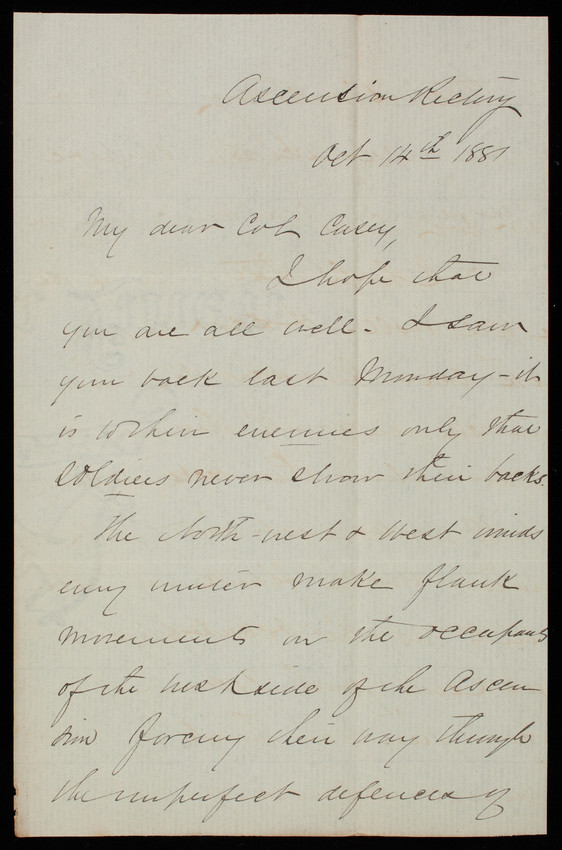 Ascension Rectory
Oct 14th 1881
My dear Col Casey,
I hope that
you are all well. I saw
your back last Monday - it
is when enemies only that
soldiers never show their backs.
The North-west & West winds
every winter make flank
movements on the occupants
of the west side of the Ascen
sion forcing their way through
the imperfect defences of